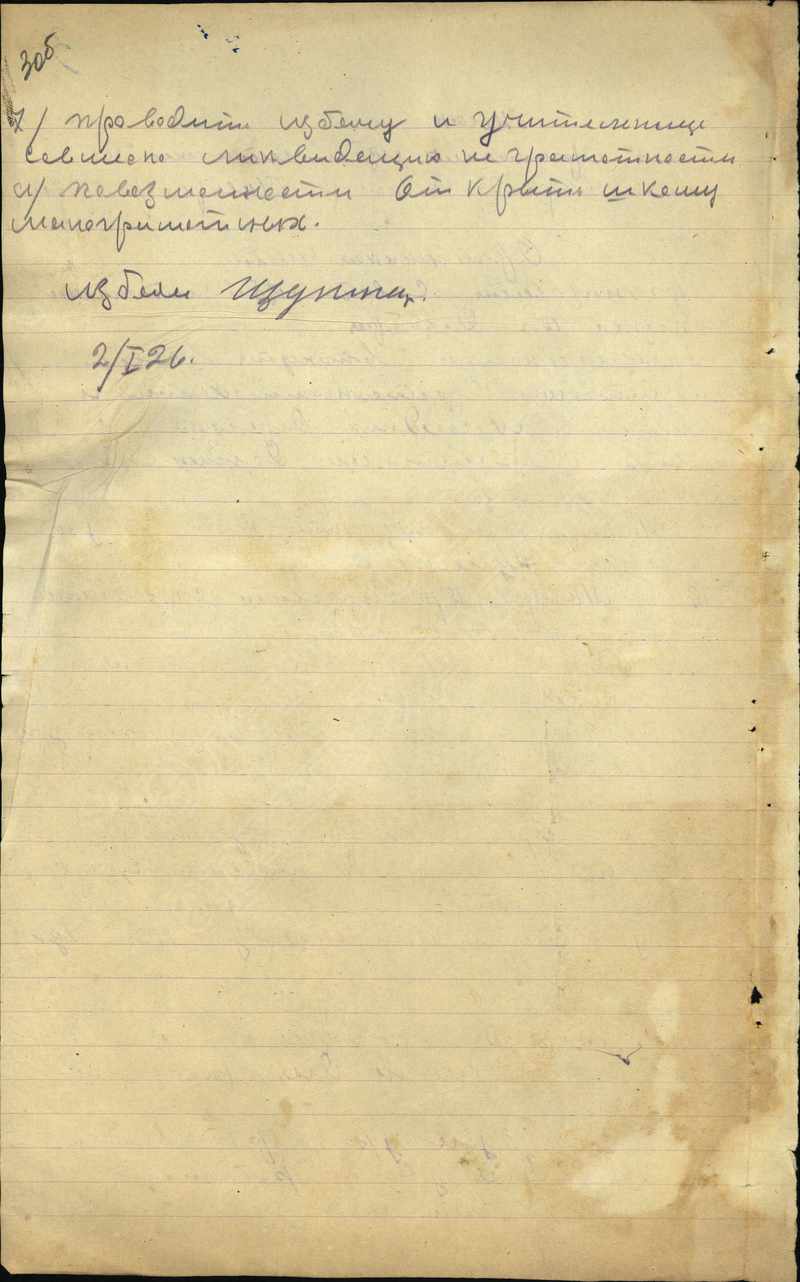 30б
7/ проводить избачу и учительнице
совместно ликвидацию не грамотности
и/ повозможности открыть школу
малограмотных.
избач
2/I 26.